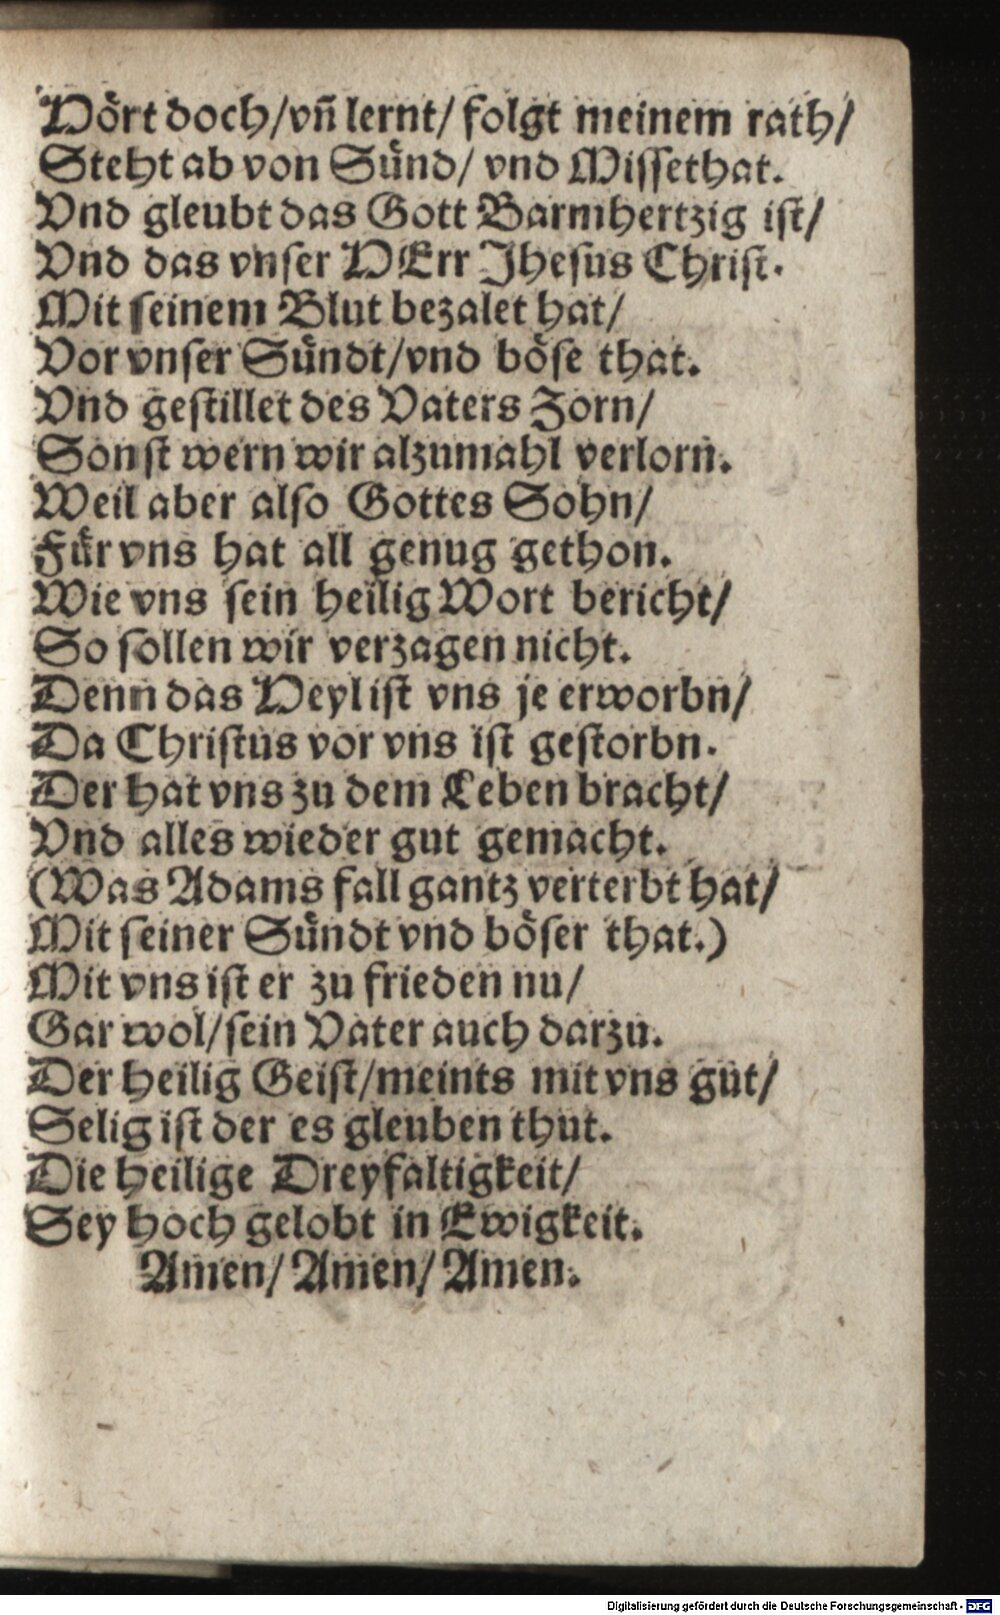 Hört doch/vñ lernt/ folgt meinem rath/
Steht ab von Sünd/ vnd Missethat.
Vnd gleubt das Gott Barmhertzig ist/
Vnd das vnser HErr Jhesus Christ.
Mit seinem Blut bezalet hat/
Vor vnser Sündt/vnd böse that.
Vnd gestillet des Vaters Zorn/
Sonst wern wir alzumahl verlorn.
Weil aber also Gottes Sohn/
Für vns hat all genug gethon.
Wie vns sein heilig Wort bericht/
So sollen wir verzagen nicht.
Denn das Heyl ist vns je erworbn/
Da Christus vor vns ist gestorbn.
Der hat vns zu dem Leben bracht/
Vnd alles wieder gut gemacht.
(Was Adams fall gantz verterbt hat/
Mit seiner Sündt vnd böser that.)
Mit vns ist er zu frieden nu/
Gar wol/sein Vater auch darzu.
Der heilig Geist/meints mit vns gut/
Selig ist der es gleuben thut.
Die heilige Dreyfaltigkeit/
Sey hoch gelobt in Ewigkeit.
Amen/ Amen/ Amen.
Digitalisierung gefördert durch die Deutsche Forschungsgemeinschaft - DFG